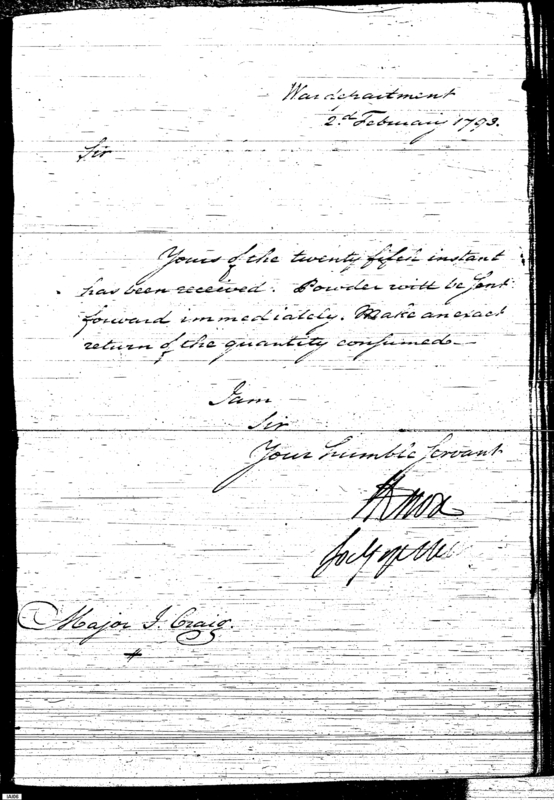 War department
2d February 1793.
Sir
Yours of the twenty fifth instant
has been received. Powder will be sent
forward immediately. Make an exact
return of the quantity consumed.
I am
Sir
Your humble Servant
HKnox
Secy of War
Major I. Craig.
IAI06